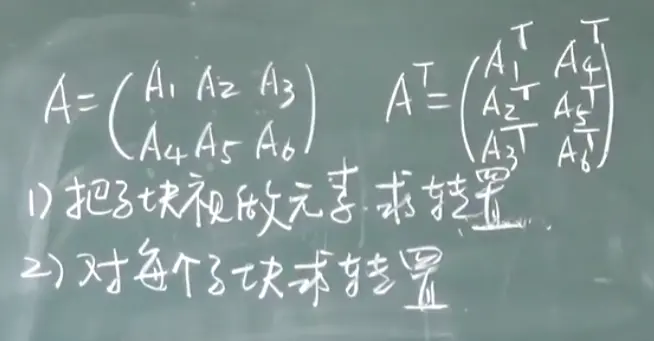 A=(A₁ A₂ A₃
A₄ A₅ A₆)
Aᵀ=(A₁ᵀ A₄ᵀ
A₂ᵀ A₅ᵀ
A₃ᵀ A₆ᵀ)
1)把子块视做元素.求转置
2)对每个子块求转置